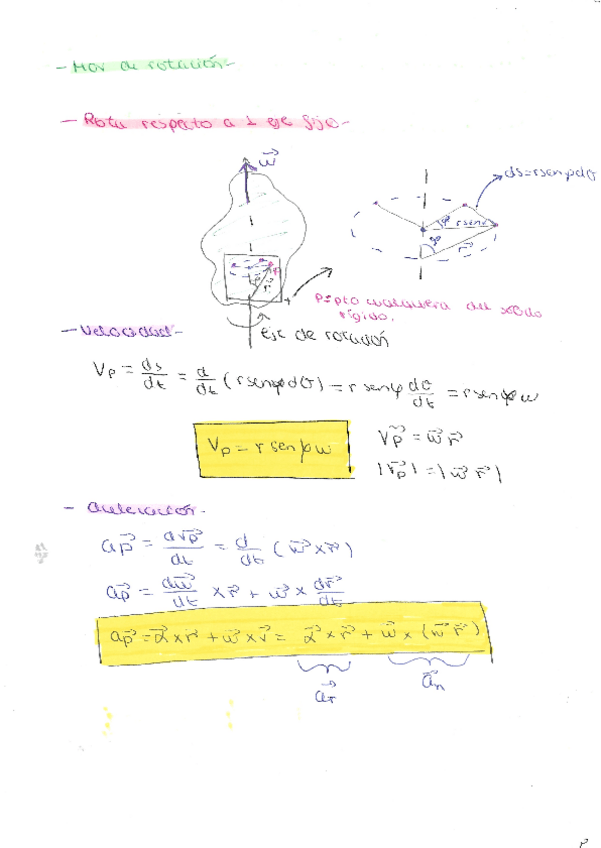 - Mov de rotación -
- Rota respecto a 1 eje fijo -
w⃗
ds=rsenφdθ
φ rsenφ
φ r⃗
P
φ r⃗
P=pto cualquiera del sólido
rígido.
Eje de rotación
- Velocidad -
Vp = ds/dt = d/dt (rsenφdθ) = r senφ dθ/dt = r senφ w
Vp = r senφ w
Vp⃗ = w⃗ r⃗
|Vp⃗| = |w⃗ r⃗|
- aceleración -
ap⃗ = dvp⃗/dt = d/dt (w⃗ x r⃗)
ap⃗ = dw⃗/dt x r⃗ + w⃗ x dr⃗/dt
ap⃗ = α⃗ x r⃗ + w⃗ x v⃗ = α⃗ x r⃗ + w⃗ x (w⃗ r⃗)
aτ⃗ a⃗n